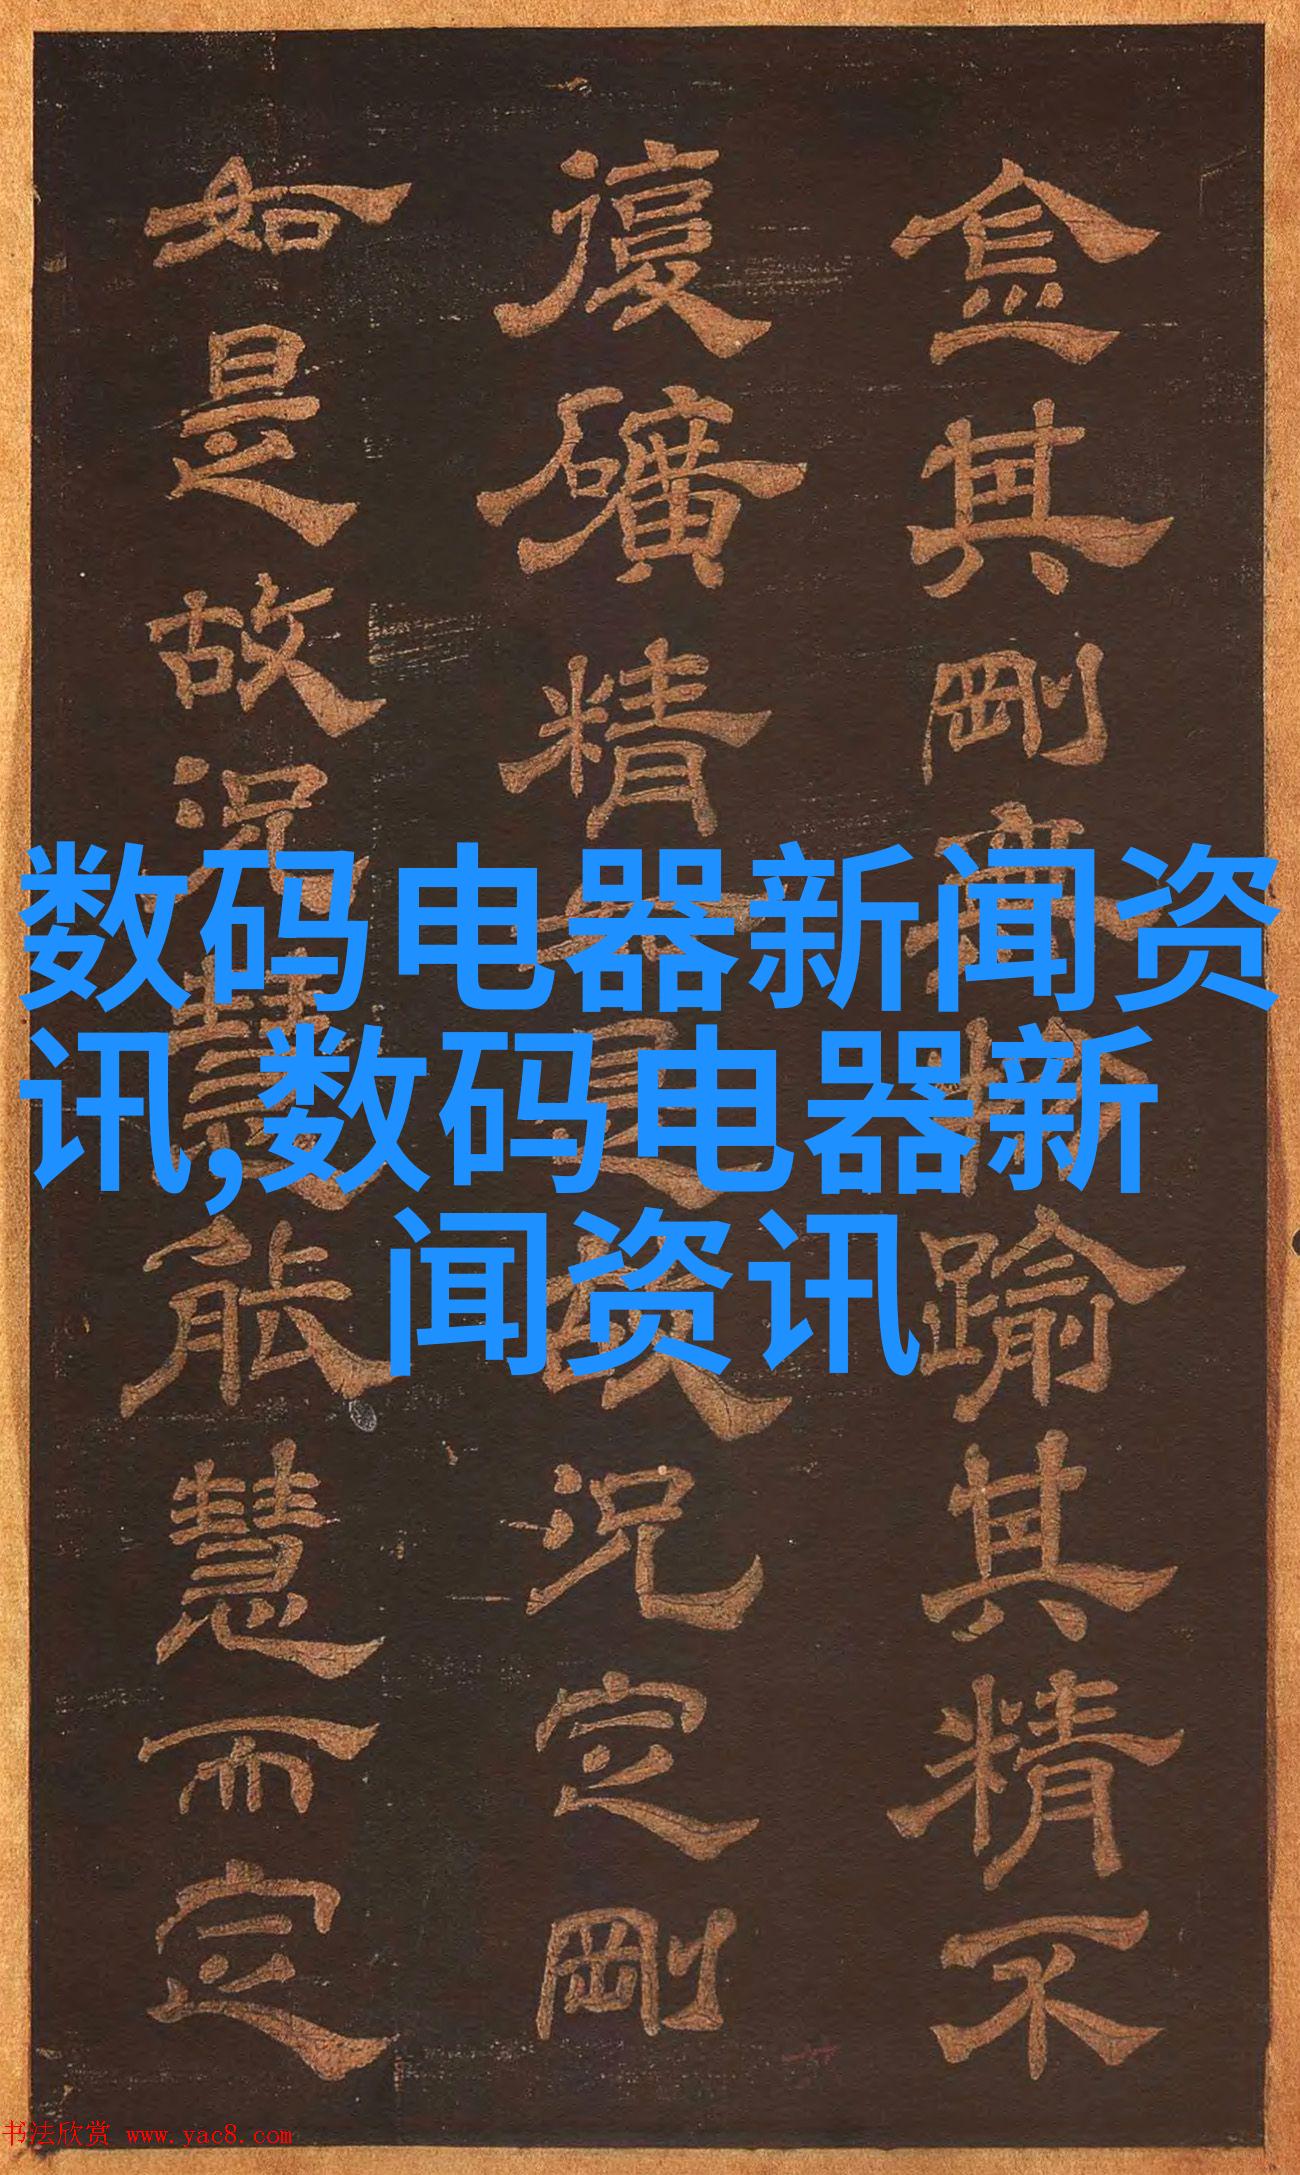 其剛踰其精不
復礦精是故況定剛
如是故況慧能慧而定
数码电器新闻资
讯,数码电器新
闻资讯
书法欣赏 www.yac8.com